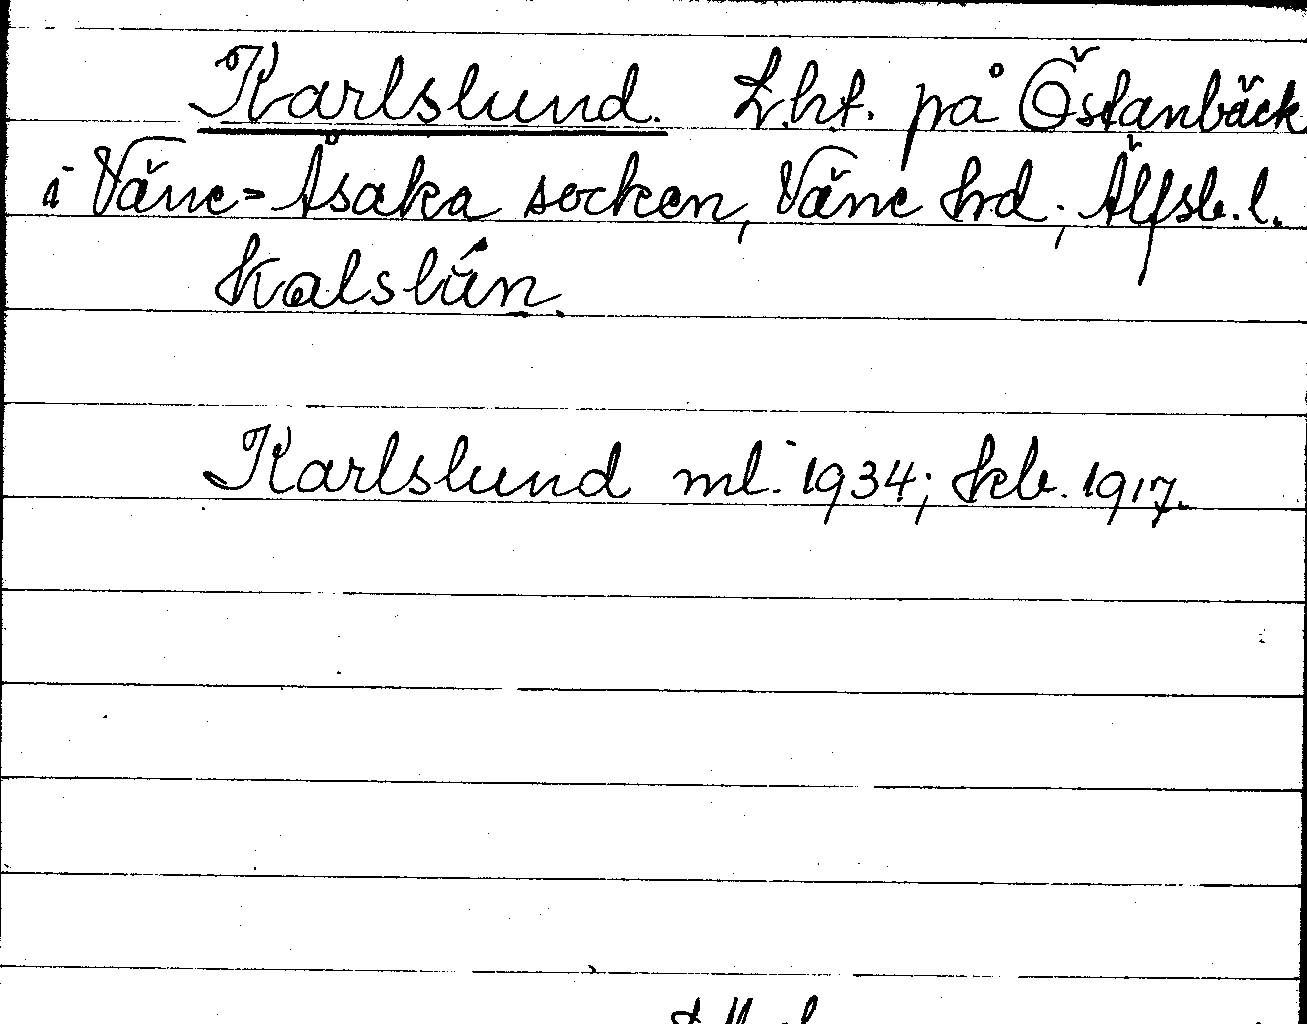 Karlslund. Lht. på Östanbäck
i Väne-Åsaka socken, Väne hrd; Älfsb. l.
kalslún.
Karlslund ml. 1934; heb. 1917.